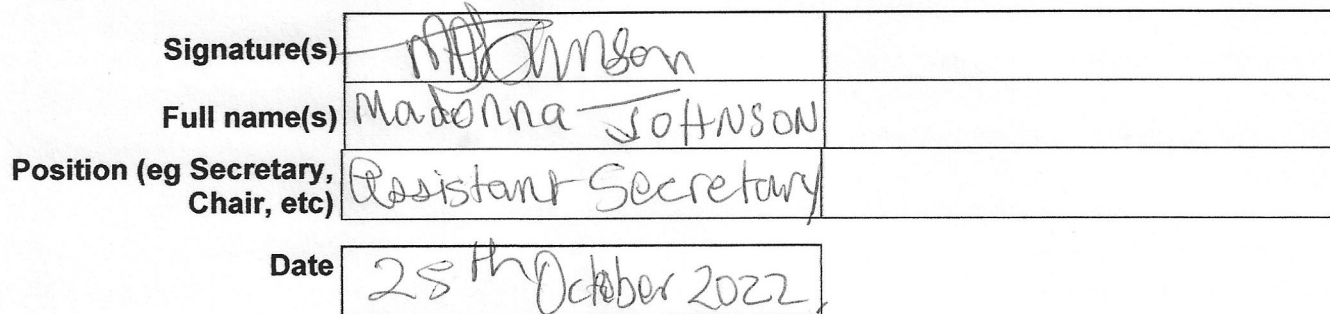 Signature(s) MJohnson
Full name(s) Madonna JOHNSON
Position (eg Secretary, Assistant Secretary
Chair, etc)
Date 25th October 2022